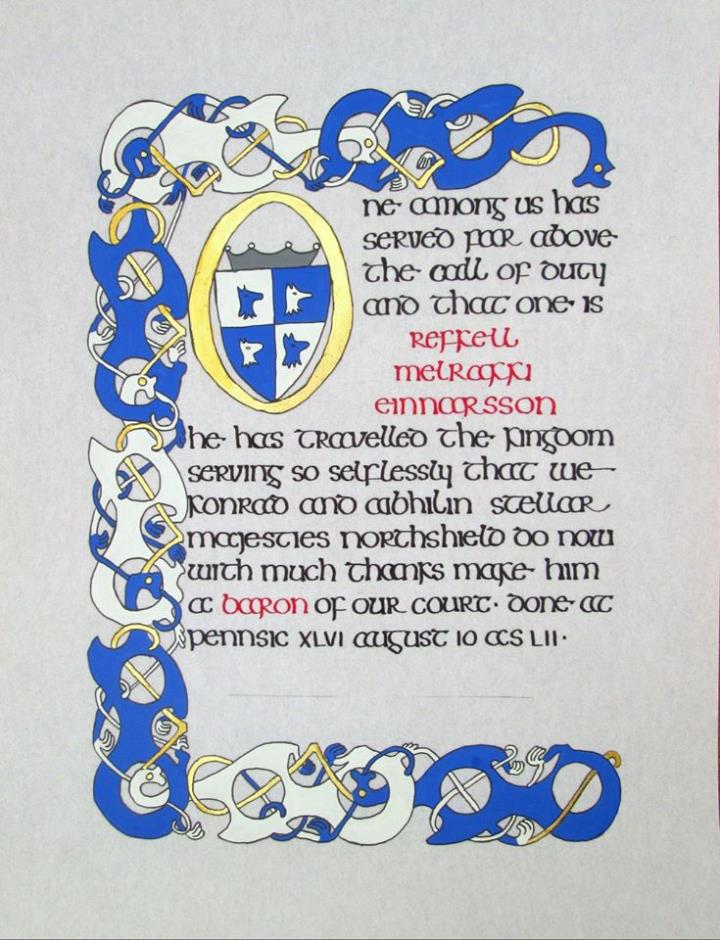 One among us has
served far above
the call of duty
and that one is
Refkell
melrakki
einnarsson
he has travelled the kingdom
serving so selflessly that we
konrad and aibhilin stellar
majesties northshield do now
with much thanks make him
a baron of our court. done at
pennsic XLVI august 10 as LII.